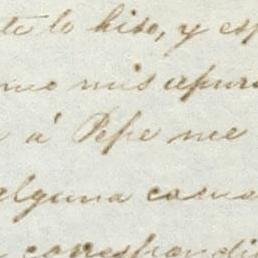 te lo hiso, y esp
mis apur
á Pepe me
alguna cosa
correspondi